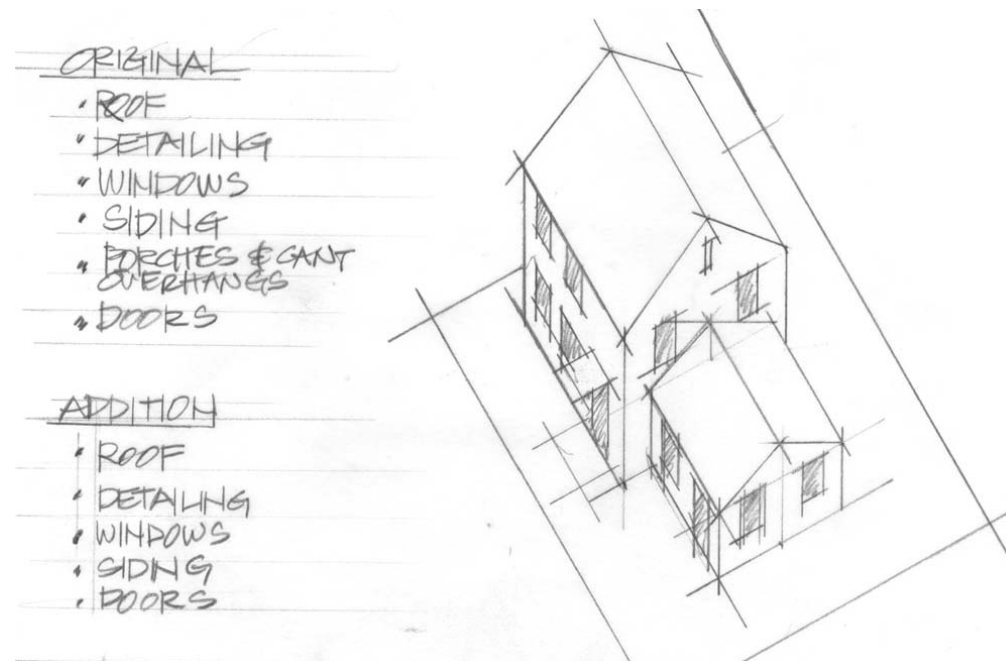 ORIGINAL
• ROOF
• DETAILING
• WINDOWS
• SIDING
• PORCHES & CANT
OVERHANGS
• DOORS
ADDITION
• ROOF
• DETAILING
• WINDOWS
• SIDING
• DOORS